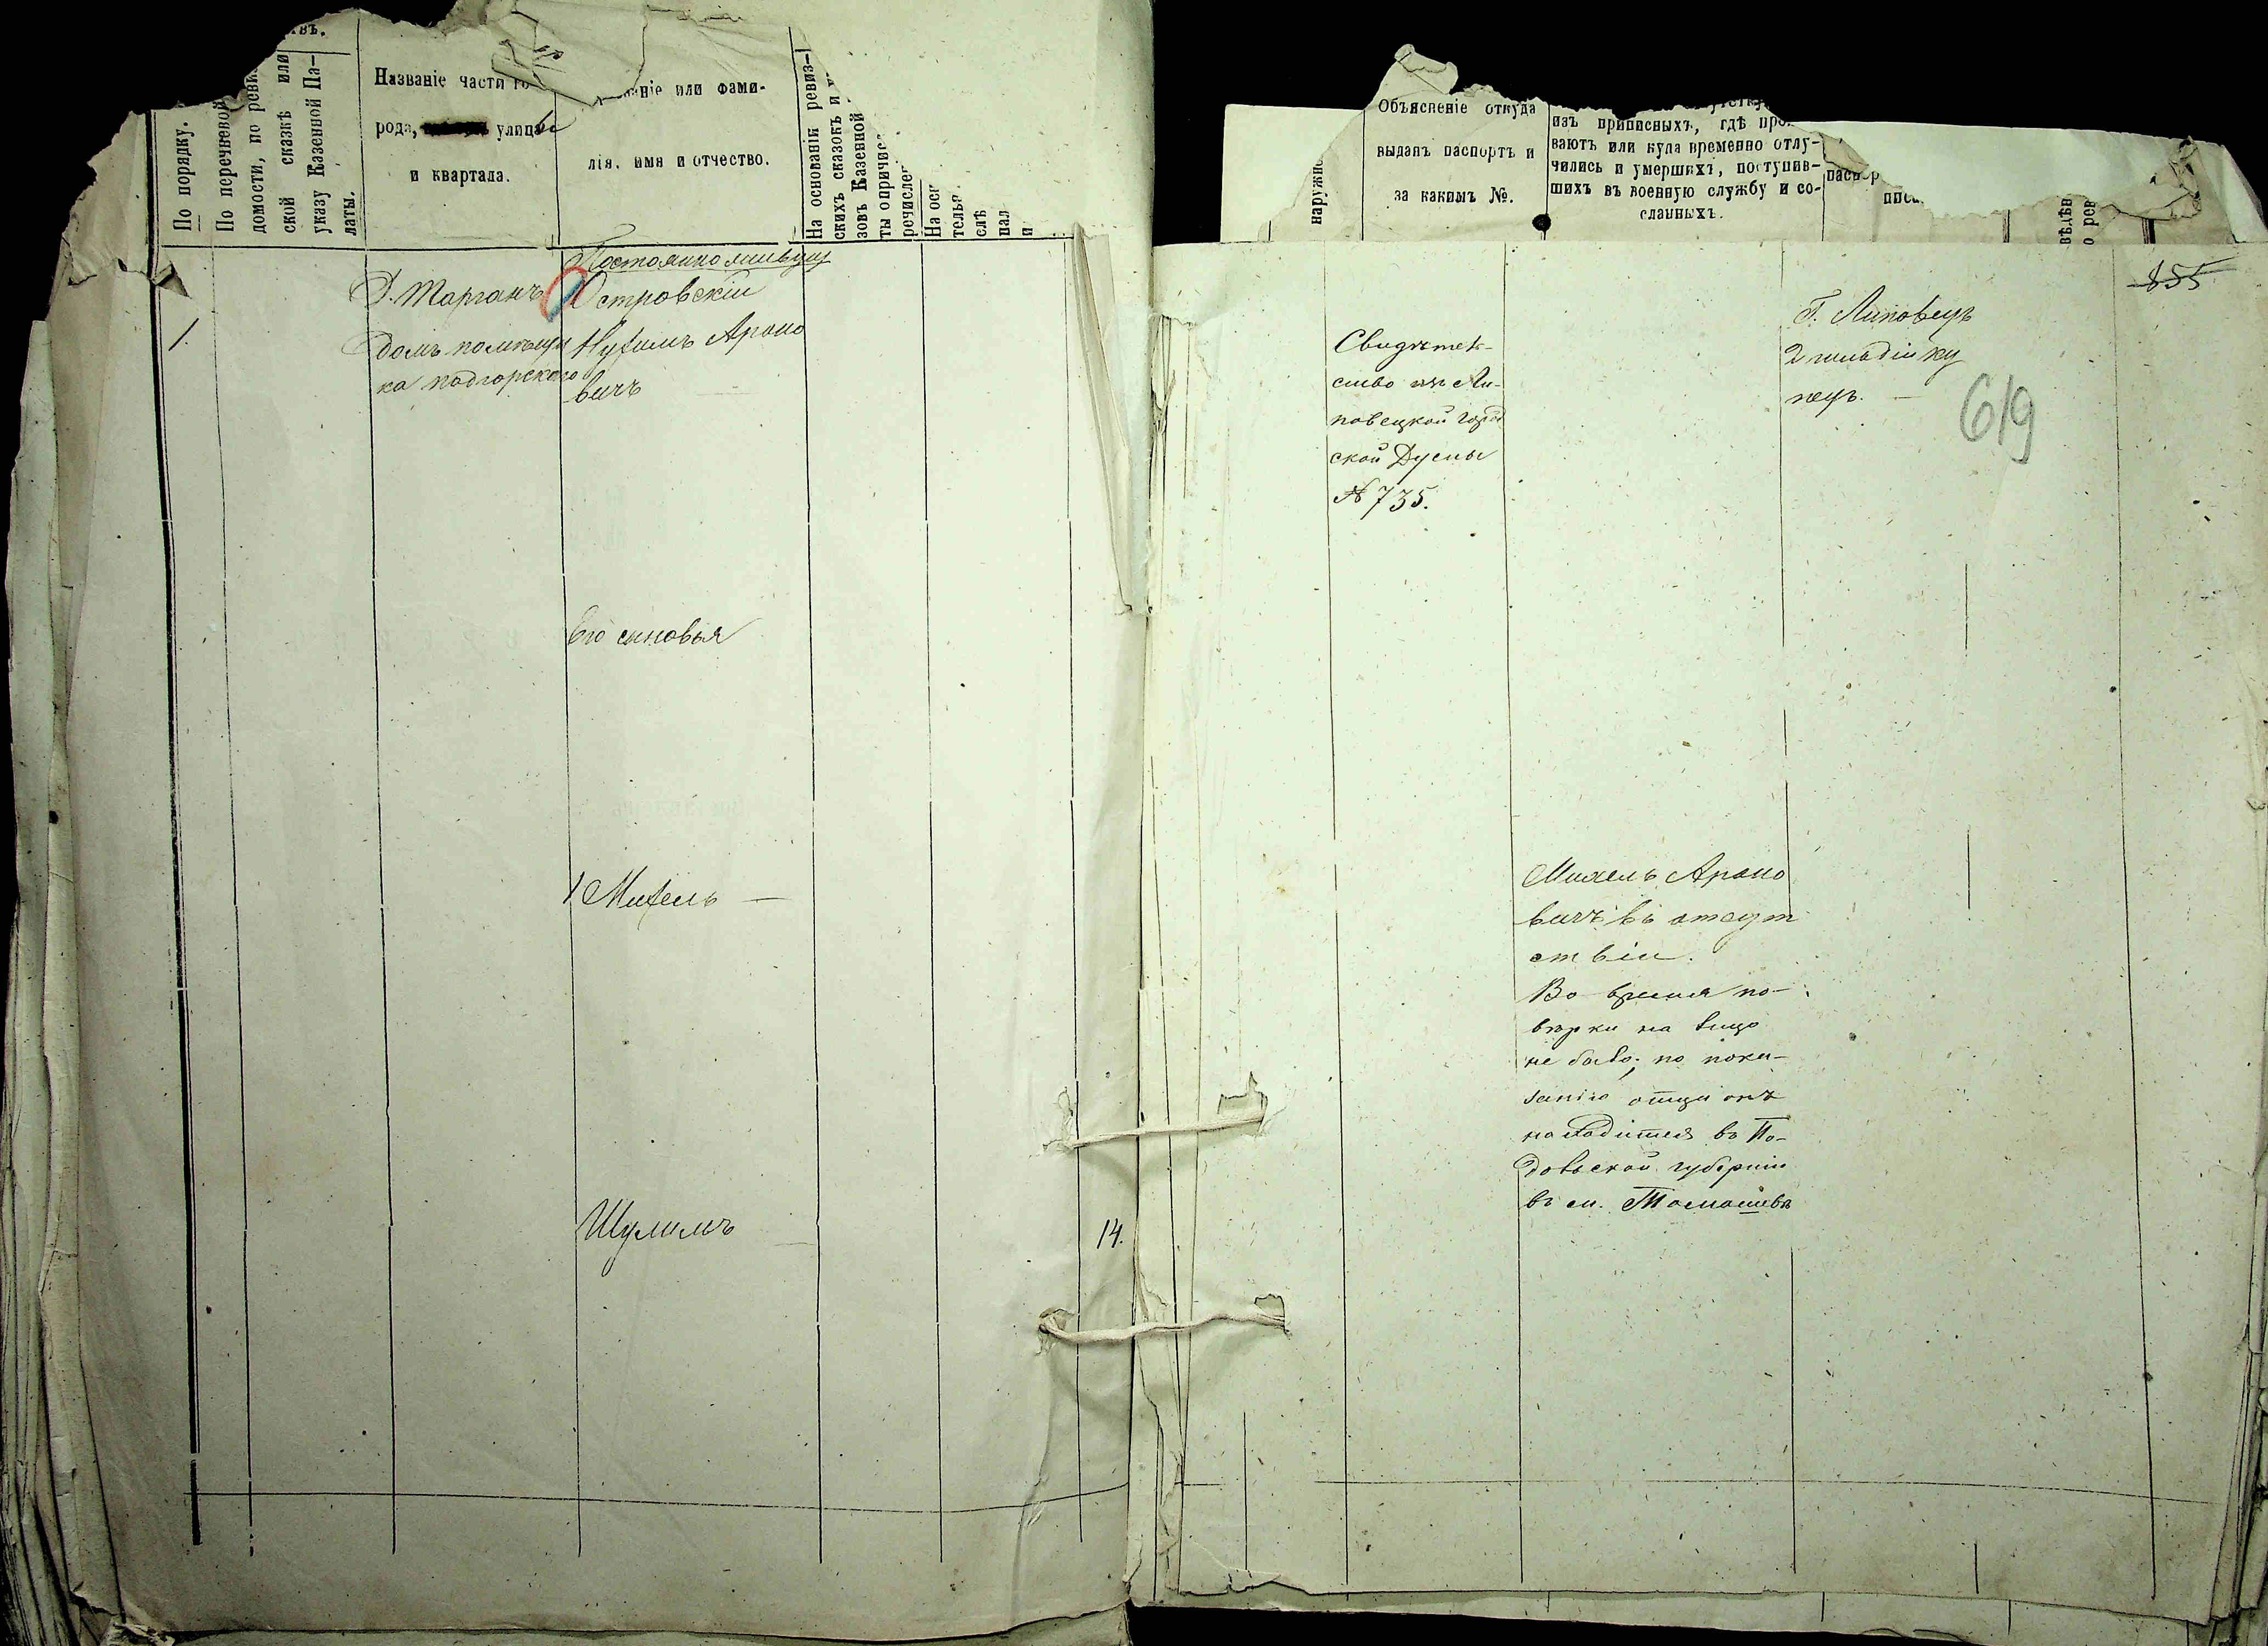 По порядку.
По перечневой
домости, по ревиз
ской сказкѣ или
указу Казенной Па-
латы.
Названіе части го-
рода, улицы
и квартала.
ніе или фами-
лія, имя и отчество.
На основаніи ревиз-
скихъ сказокъ и
зовъ Казенной
ты опричис
речислен
На осн
телья
слѣ
пал
и
Постоянно живущ
1.
Д. Тарганъ
Домъ помѣщи
ка Подгорского
Островскій
Нухимъ Ароно
вичъ
Его сыновья
1 Михель —
Шулимъ
14.
наружн
Объясненіе откуда
выданъ паспортъ и
за какимъ №.
изъ приписныхъ, гдѣ про
ваютъ или куда временно отлу-
чились и умершихъ, поступив-
шихъ въ военную службу и со-
сланныхъ.
паспор
пис
вѣдѣн
о рев
855
619
Свидѣтель-
ство изъ Ли-
повецкой Город
ской Думы
№ 735.
Г. Липовецъ
2 гильдіи ку
пецъ. —
Михель Ароно
вичъ въ отсут
ствіи.
Во время по-
вѣрки на лицо
не было; по пока-
занію отца онъ
находится въ По-
дольской губерніи
въ м. Томашевѣ